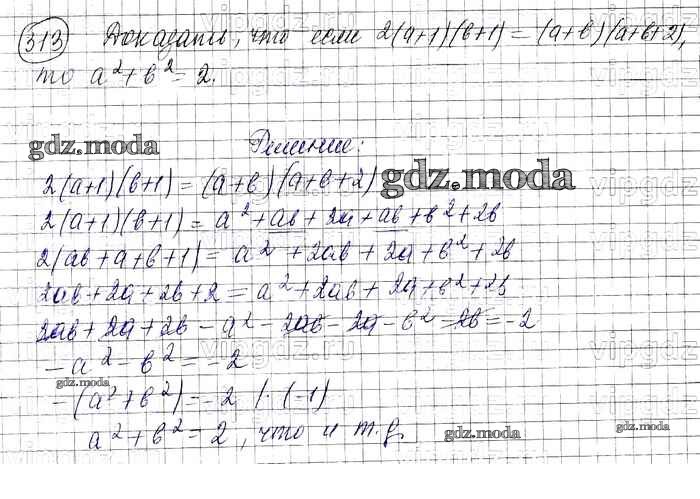 313 Доказать, что если 2(a+1)(b+1) = (a+b)(a+b+2),
то a²+b²=2.
gdz.moda
Решение:
2(a+1)(b+1) = (a+b)(a+b+2)
gdz.moda
2(a+1)(b+1) = a²+ab+2a+ab+b²+2b
2(ab+a+b+1) = a²+2ab+2a+b²+2b
2ab+2a+2b+2 = a²+2ab+2a+b²+2b
2ab+2a+2b-a²-2ab-2a-b²-2b=-2
-a²-b²=-2
gdz.moda
-(a²+b²)=-2 | ·(-1)
a²+b²=2, что и т.д.
gdz.moda
gdz.moda
vipgdz
vipgdz.ru
vipgdz
vipgdz
vipgdz.ru
vipgdz